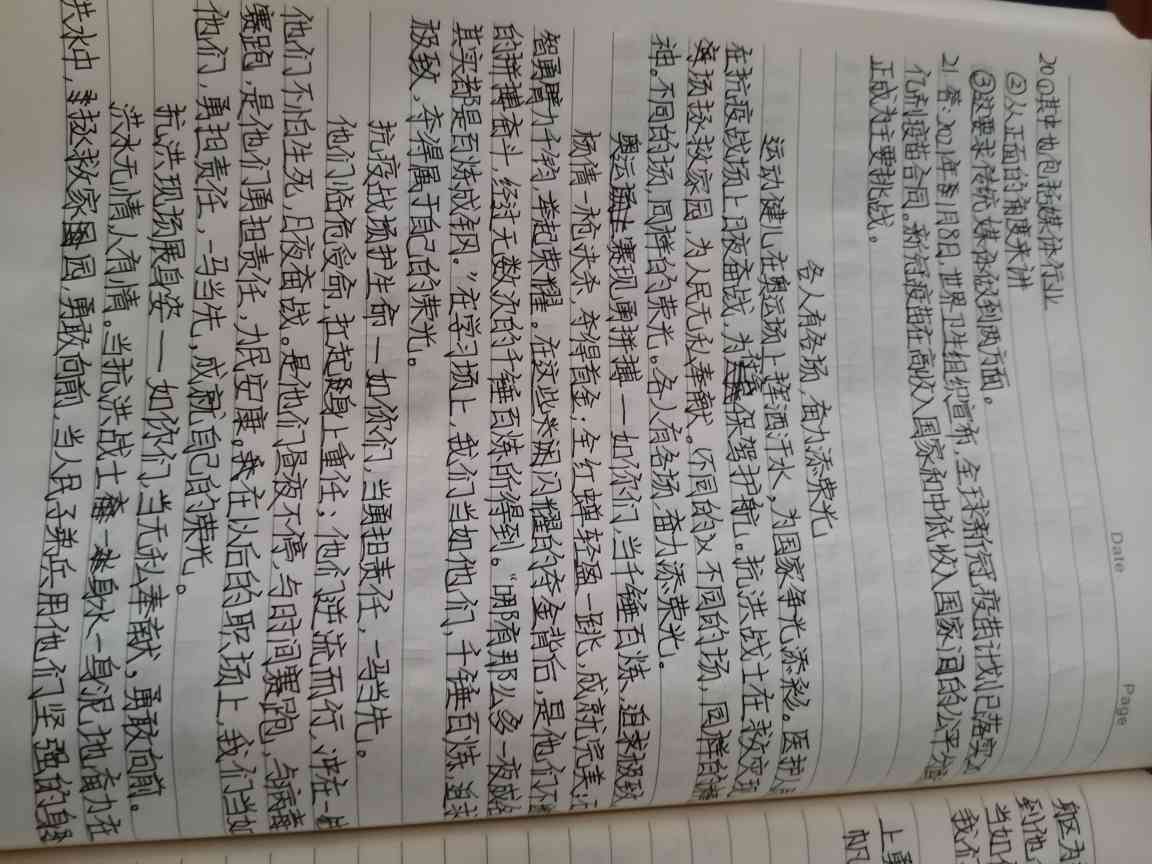 Date
Page
20.①其中也包括媒体行业
②人人正面的角度来讲
③要求传统媒体做到两方面。
21.答:2021年1月8日,世界卫生组织宣布,全球新冠疫苗计划已落实
亿剂疫苗合同。新冠疫苗在高收入国家和中低收入国家间的公平分
正成为主要挑战。
各人有各场,奋力添荣光
运动健儿在奥运场上挥洒汗水,为国家争光添彩。医护人
在抗疫战场上日夜奋战,为保驾护航。抗洪战士在救灾现
场拯救家园,为人民无私奉献。不同的人不同的场,同样的精
神。不同的场,同样的荣光。各人有各场,奋力添荣光。
奥运赛现勇拼搏——如你们,当千锤百炼,追求极致
杨倩一枪决杀,夺得首金;全红蝉轻盈一跳,成就完美;
智勇臂力千钧,举起荣耀。在这些荣闪闪耀的夺金背后,是他们
的拼搏奋斗,经过无数次的千锤百炼所得到。“哪有那么多一夜成
其实都是百炼成钢。”在学习场上,我们当如他们,千锤百炼,追求
极致,夺得属于自己的荣光。
抗疫战场护生命——如你们,当勇担责任,一马当先。
他们临危受命,扛起身上重任;他们逆流而行,冲在一
他们不怕生死,日夜奋战。是他们昼夜不停,与时间赛跑,与病毒
赛跑,是他们勇担责任,力民安康。在以后的职场上,我们当如
他们,勇担责任,一马当先,成就自己的荣光。
抗洪现场展身姿——如你们,当无私奉献,勇敢向前。
洪水无情,人有情。当抗洪战士一身水一身泥,地奋力在
洪水中,拯救家园,勇敢向前,当人民子弟兵用他们坚强的身
躯为
到他
当如
我们
上勇
帆